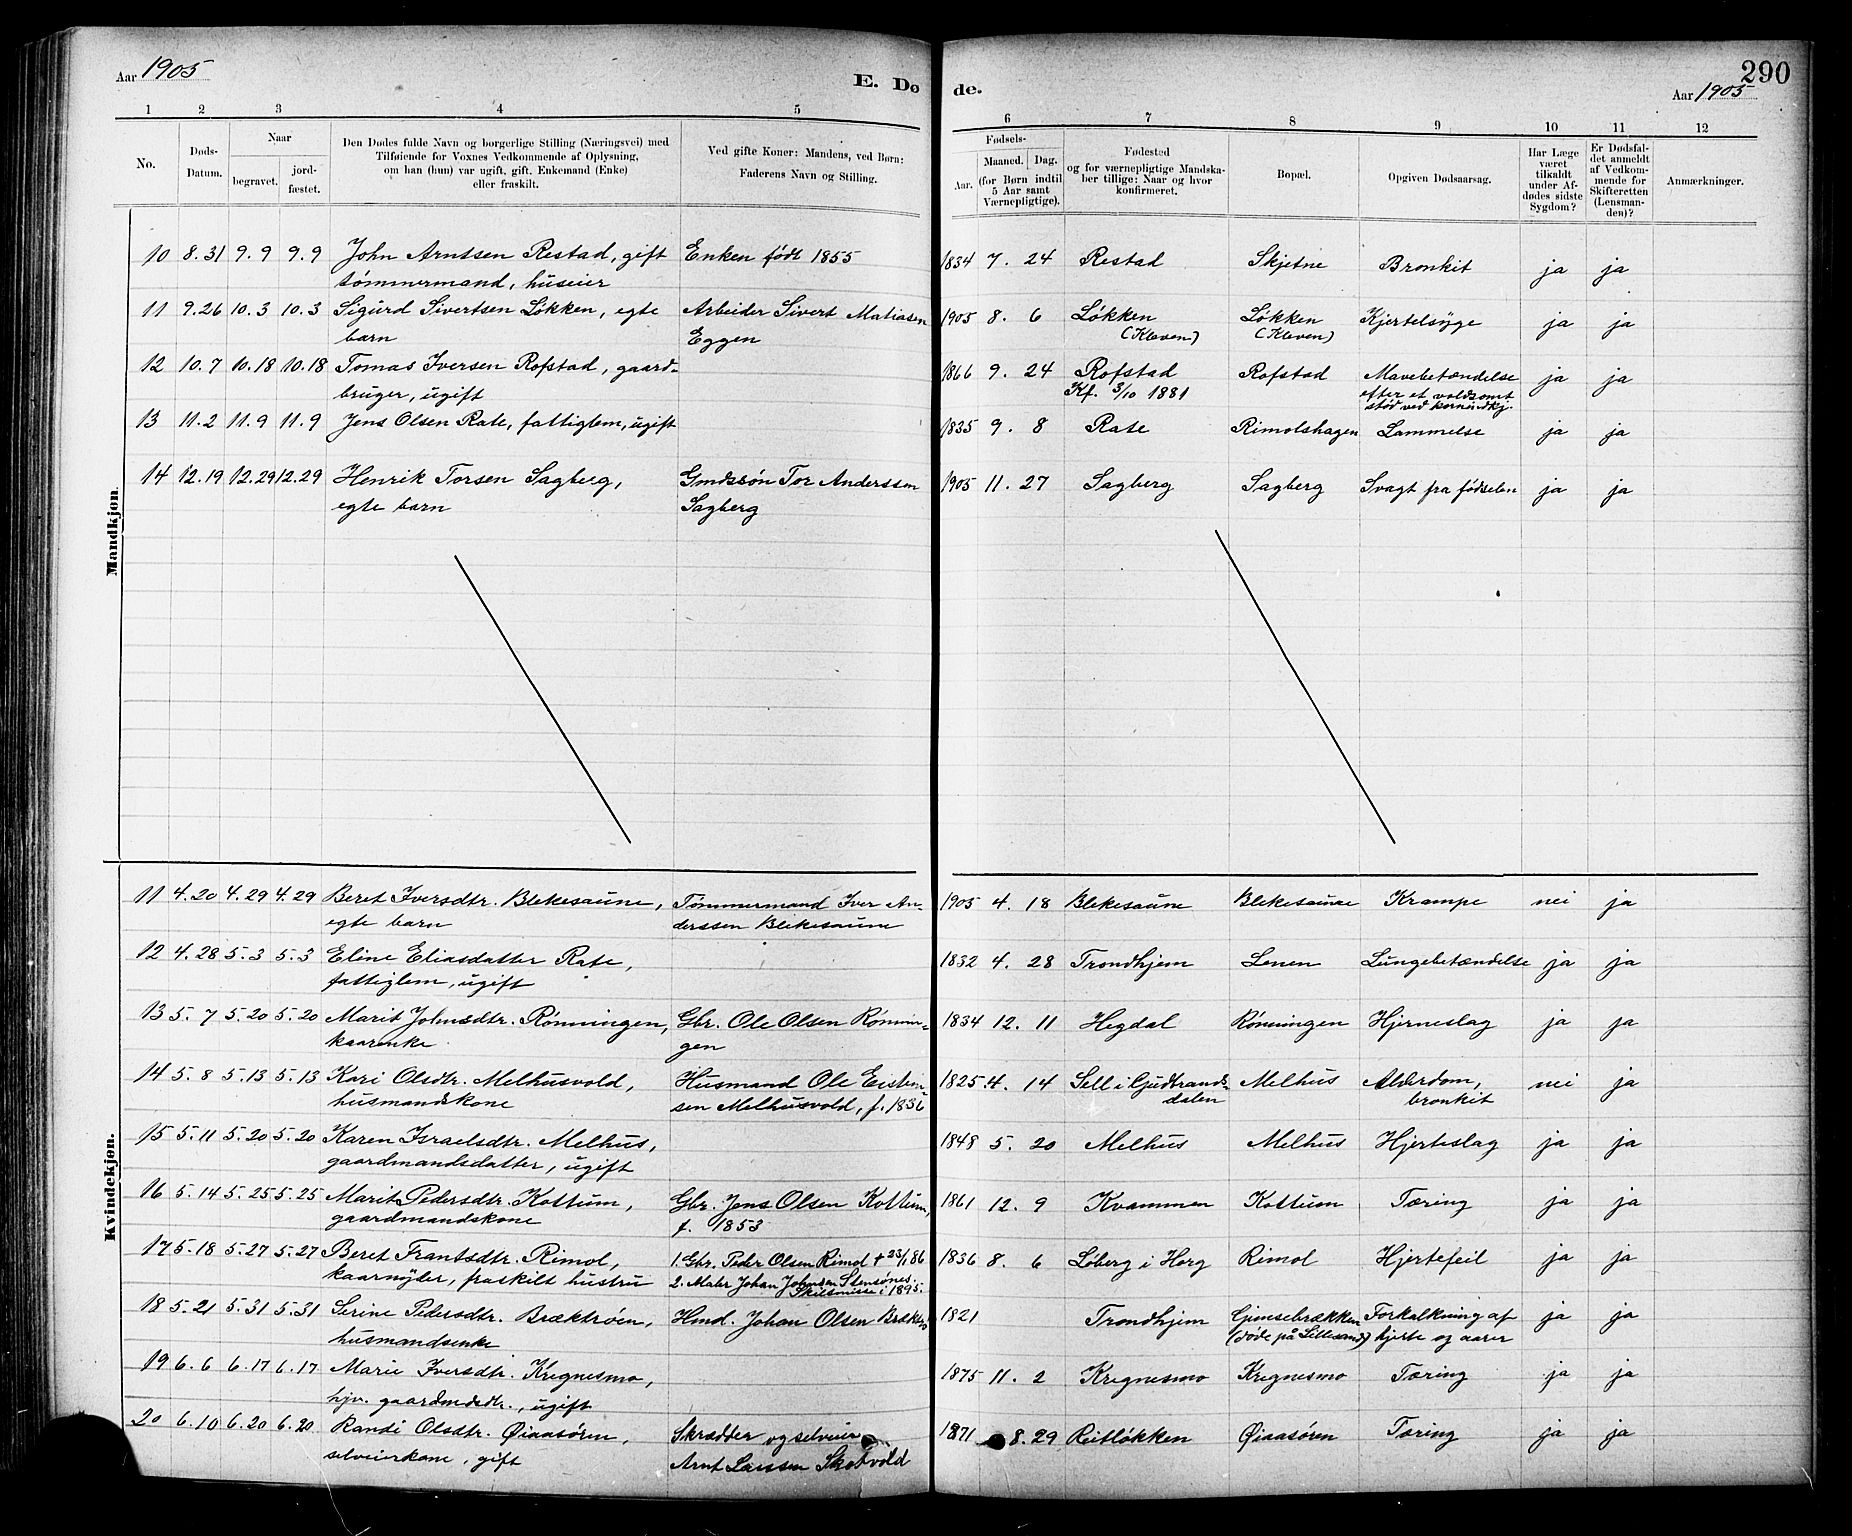 Aar 1905
E. Dø
de.
290
Aar 1905
1 2 3 4 5
6 7 8 9 10 11 12
No.
Døds-
Datum.
Naar
begravet.
jord-
fæstet.
Den Dødes fulde Navn og borgerlige Stilling (Næringsvei) med
Tilføiende for Voxnes Vedkommende af Oplysning,
om han (hun) var ugift, gift, Enkemand (Enke)
eller fraskilt.
Ved gifte Koner: Mandens, ved Børn:
Faderens Navn og Stilling.
Fødsels-
Aar.
Maaned. Dag.
(for Børn indtil
5 Aar samt
Værnepligtige).
Fødested
og for værnepligtige Mandska-
ber tillige: Naar og hvor
konfirmeret.
Bopæl.
Opgiven Dødsaarsag.
Har Læge
været
tilkaldt
under Af-
dødes sidste
Sygdom?
Er Dødsfal-
det anmeldt
af Vedkom-
mende for
Skifteretten
(Lensman-
den)?
Anmærkninger.
Mandkjøn.
10 8.31 9.9 9.9 John Arntsen Restad, gift Enken født 1855 1834 7. 24 Restad Skjetne Bronkit ja ja
tømmermand, huseier
11 9.26 10.3 10.3 Sigurd Sivertsen Løkken, egte Arbeider Sivert Matiasen 1905 8. 6 Løkken Løkken Kjertelsyge ja ja
barn Eggen (Kleven) (Kleven)
12 10.7 10.18 10.18 Tomas Iversen Rofstad, gaard- 1866 9. 24 Rofstad Rofstad Mavebetændelse ja ja
bruger, ugift Kf. 3/10 1881 efter et voldsomt
stød ved kornindkj.
13 11.2 11.9 11.9 Jens Olsen Rate, fattiglem, ugift 1835 9. 8 Rate Rimolshagen Lammelse ja ja
14 12.19 12.29 12.29 Henrik Torsen Sagberg, Gmdssøn Tor Anderssen 1905 11. 27 Sagberg Sagberg Svagt fra fødselen ja ja
egte barn Sagberg
Kvindekjøn.
11 4.20 4.29 4.29 Beret Iversdtr. Blekesaune, Tømmermand Iver An- 1905 4. 18 Blekesaune Blekesaune Krampe nei ja
egte barn derssen Blekesaune
12 4.28 5.3 5.3 Eline Eliasdatter Rate, 1832 4. 28 Trondhjem Lenen Lungebetændelse ja ja
fattiglem, ugift
13 5.7 5.20 5.20 Marit Johnsdtr. Rønningen, Gbr. Ole Olsen Rønnin- 1834 12. 11 Hegdal Rønningen Hjerneslag ja ja
kaarenke gen
14 5.8 5.13 5.13 Kari Olsdtr. Melhusvold, Husmand Ole Eisten- 1825 4. 14 Sell i Gudbrands- Melhus Alderdom, nei ja
husmandskone sen Melhusvold, f. 1836 dalen bronkit
15 5.11 5.20 5.20 Karen Israelsdtr. Melhus, 1848 5. 20 Melhus Melhus Hjerteslag ja ja
gaardmandsdatter, ugift
16 5.14 5.25 5.25 Marit Pedersdtr. Kottum, Gbr. Jens Olsen Kottum, 1861 12. 9 Kvammen Kottum Tæring ja ja
gaardmandskone f. 1853
17 5.18 5.27 5.27 Beret Frantsdtr. Rimol, 1. Gbr. Peder Olsen Rimol + 23/1 86 1836 8. 6 Løberg i Horg Rimol Hjertefeil ja ja
kaarnyder, fraskilt hustru 2. Maler Johan Johnsen Stensønes.
Skilsmisse i 1895.
18 5.21 5.31 5.31 Serine Pedersdtr. Bræktrøen, Hmd. Johan Olsen 1821 Trondhjem Gimsebrækken Forkalkning af ja ja
husmandsenke (døde på Lillesand) hjerte og aarer
19 6.6 6.17 6.17 Marie Iversdtr. Kregnesmo, 1875 11. 2 Kregnesmo Kregnesmo Tæring ja ja
hjv. gaardmdsdtr., ugift
20 6.10 6.20 6.20 Randi Olsdtr. Øiaasøren, Skrædder og selveier 1871 8. 29 Reitløkken Øiaasøren Tæring ja ja
selveierkone, gift Arnt Larssen Skotvold